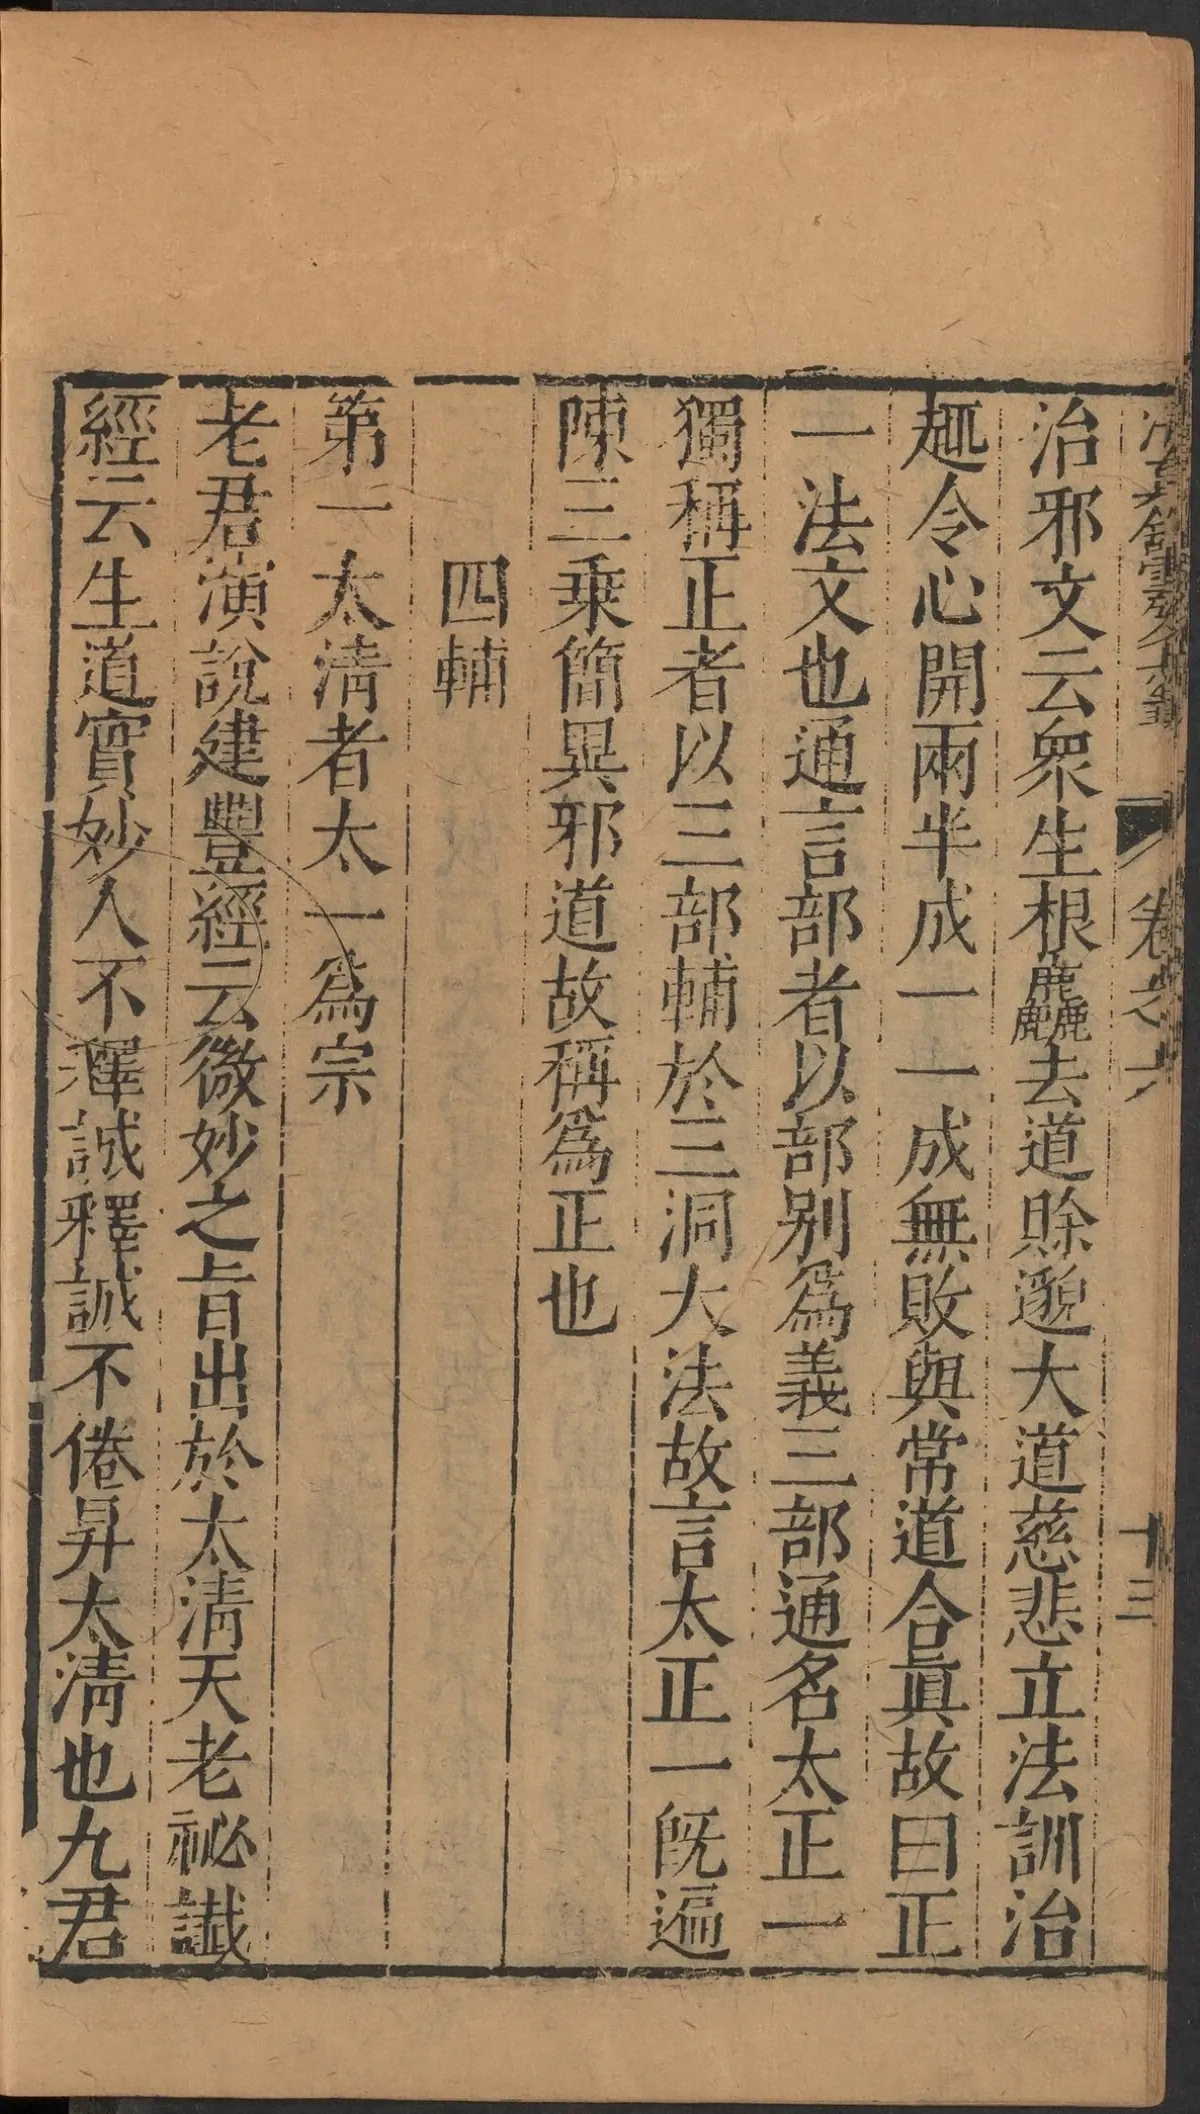 清真館雲笈七籤 卷之六 十三
治邪文云衆生根麤去道賖邈大道慈悲立法訓治
趣令心開兩半成一一成無敗與常道合眞故曰正
一法文也通言部者以部别爲義三部通名太正一
獨稱正者以三部輔於三洞大法故言太正一既遍
陳三乗簡異邪道故稱爲正也
四輔
第一太清者太一爲宗
老君演說建豐經云微妙之旨出於太清天老祕讖
經云生道實妙人不澤誠釋誠不倦昇太清也九君